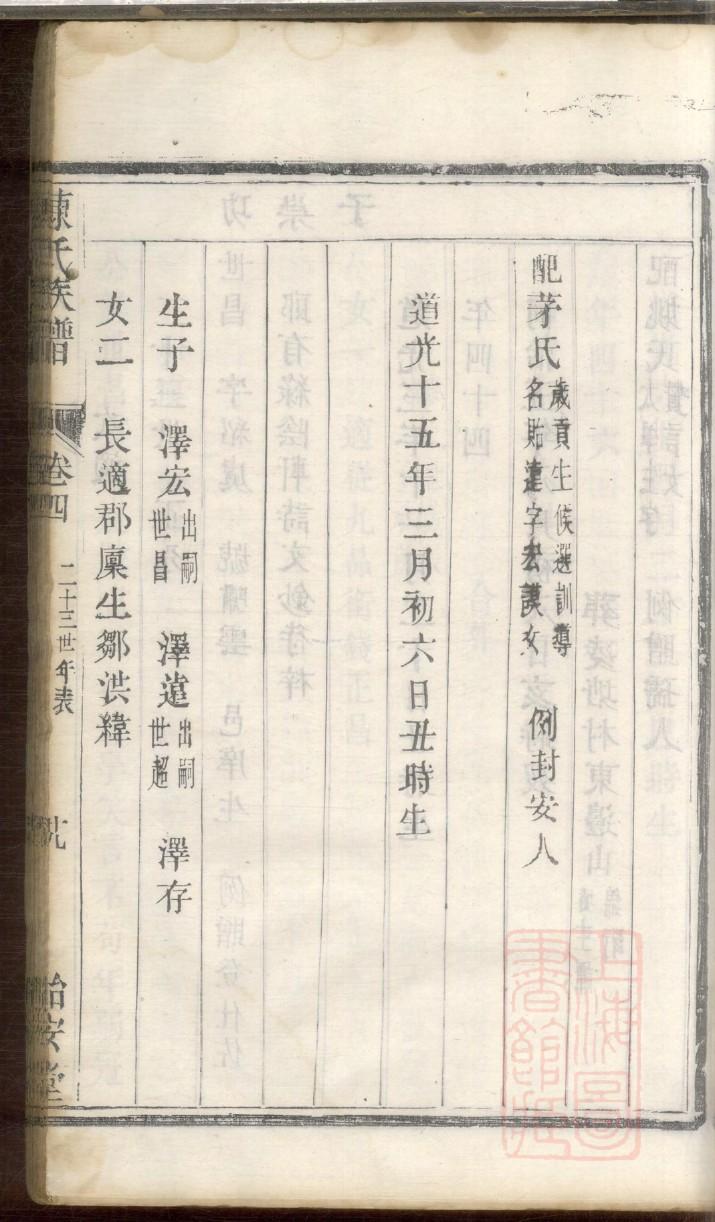 配茅氏歲貢生候選訓導名貽漣字宏謨女 例封安人
道光十五年三月初六日丑時生
生子 澤宏出嗣世昌 澤薳出嗣世超 澤存
女二 長適郡廩生鄒洪緯
陳氏族譜 卷四 二十三世年表 怡安堂
上海圖書館藏